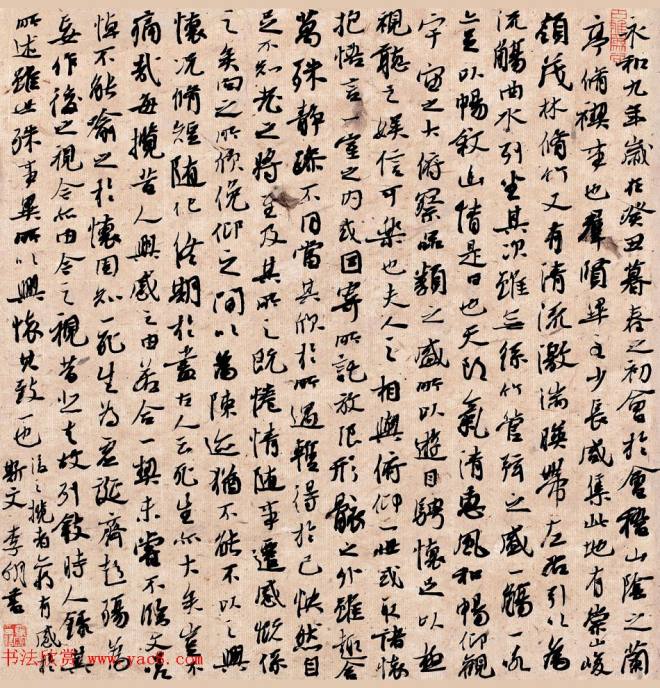 永和九年歲在癸丑暮春之初會於會稽山陰之蘭
亭脩禊事也群賢畢至少長咸集此地有崇山峻
領茂林脩竹又有清流激湍暎帶左右引以為
流觴曲水列坐其次雖無絲竹管弦之盛一觴一詠
亦足以暢敘幽情是日也天朗氣清惠風和暢仰觀
宇宙之大俯察品類之盛所以遊目騁懷足以極
視聽之娛信可樂也夫人之相與俯仰一世或取諸懷
抱悟言一室之內或因寄所託放浪形骸之外雖趣舍
萬殊靜躁不同當其欣於所遇暫得於己怏然自
足不知老之將至及其所之既惓情隨事遷感慨係
之矣向之所欣俛仰之間以為陳迹猶不能不以之興
懷況脩短隨化終期於盡古人云死生亦大矣豈不
痛哉每攬昔人興感之由若合一契未嘗不臨文嗟
悼不能喻之於懷固知一死生為虛誕齊彭殤為
妄作後之視今亦由今之視昔悲夫故列敘時人錄其
所述雖世殊事異所以興懷其致一也
後之攬者亦有感於
斯文 李 書
书法欣赏 www.yac8.com